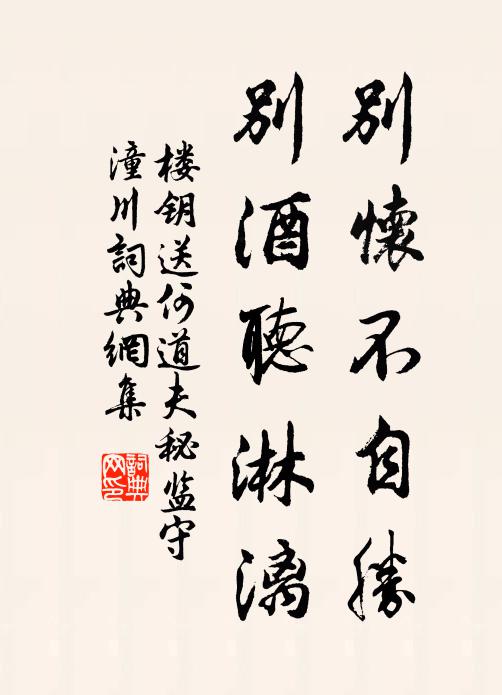 别懷不自勝
别酒聽淋漓
楼钥送何道夫秘监守
潼川詞典網集
詞典网印